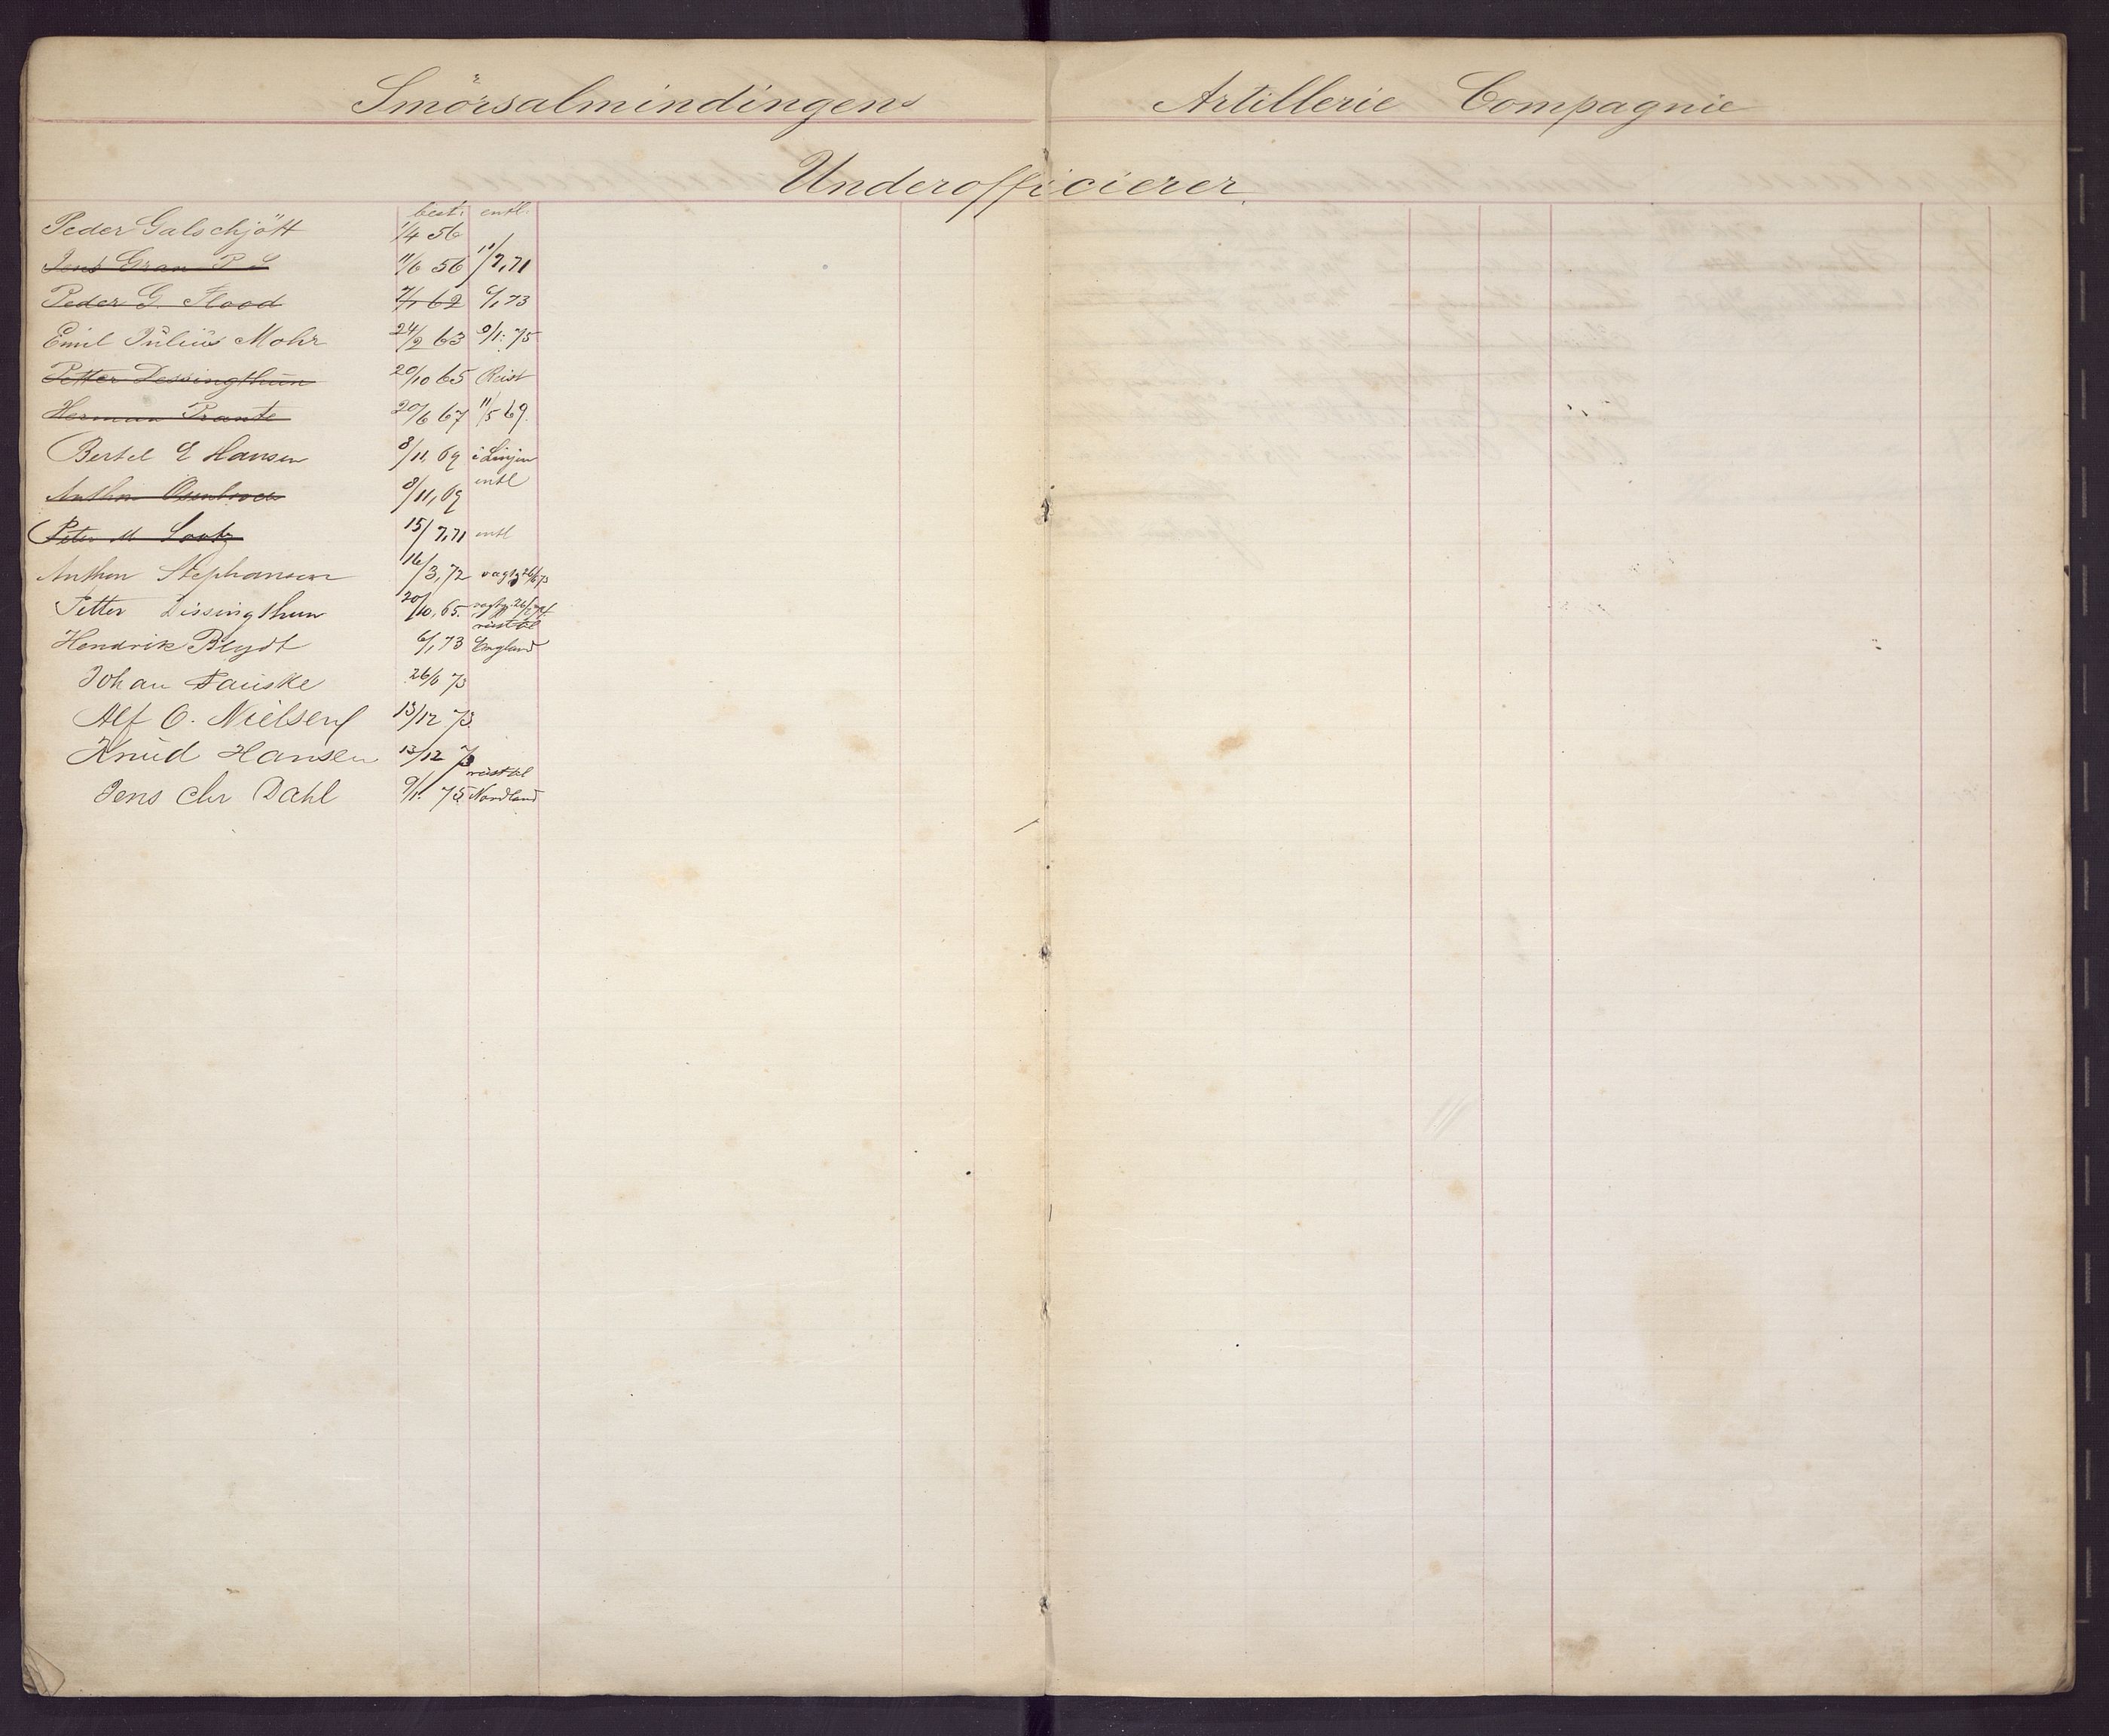 Smörsalmindingens Artillerie Compagnie
Underofficierer
best: entl.
Peder Galschjött 1/4 56
Jens Gran P S 11/6 56 11/7,71
Peder G. Flood 7/1 62 6/1 73
Emil Julius Mohr 24/2 63 9/1. 75
Petter Dessingthun 20/10 65 Reist
Herman Prante 20/6 67 11/5 69.
Bertel E Hansen 8/11, 69 i Linjen
Anthon 8/11, 69 entl
Peter M 15/7,71 entl
Anthon Stephansen 16/3, 72
Petter Dissingthun 20/10, 65.
reist til
Hendrik Blydt 6/1 73 England
Johan Fauske 26/6 73
Alf O. Nielsen 13/12 73.
Knud Hansen 13/12 73
reist til
Jens Chr Dahl 9/1. 75 Nordland